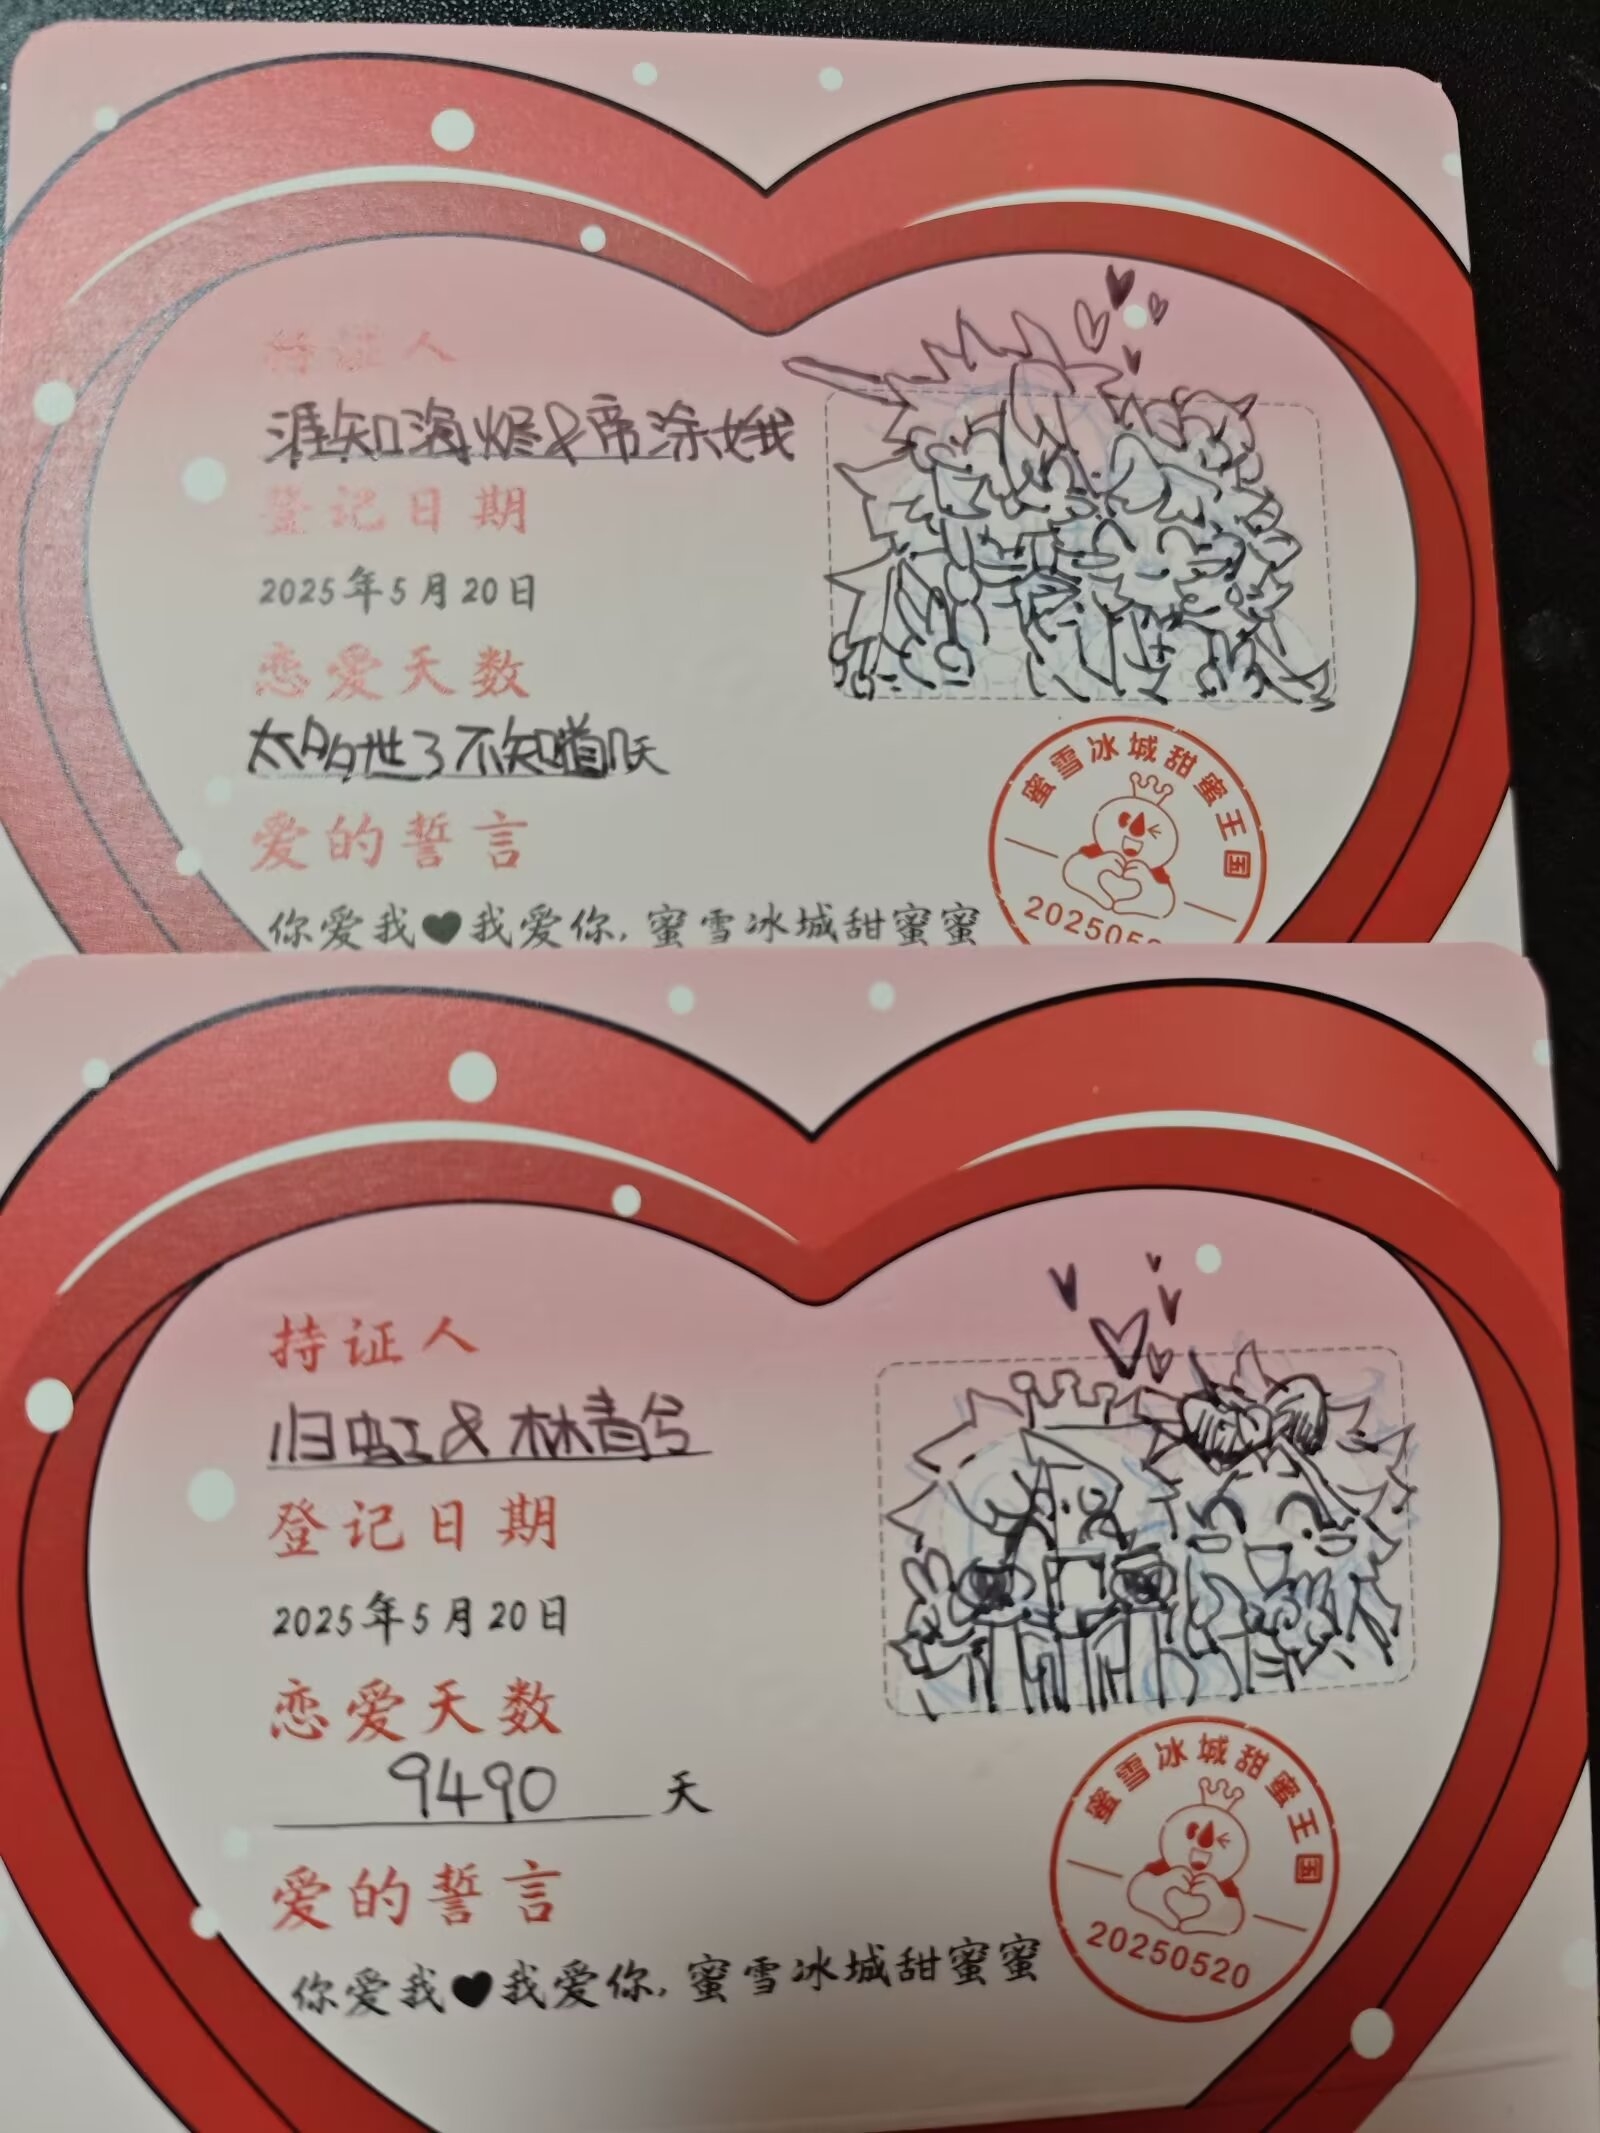 持证人
涯知海烬&帝涂娥
登记日期
2025年5月20日
恋爱天数
太多世了不知道几天
爱的誓言
你爱我♥我爱你,蜜雪冰城甜蜜蜜
蜜雪冰城甜蜜王国
202505
持证人
归虹&林青兮
登记日期
2025年5月20日
恋爱天数
9490天
爱的誓言
你爱我♥我爱你,蜜雪冰城甜蜜蜜
蜜雪冰城甜蜜王国
20250520